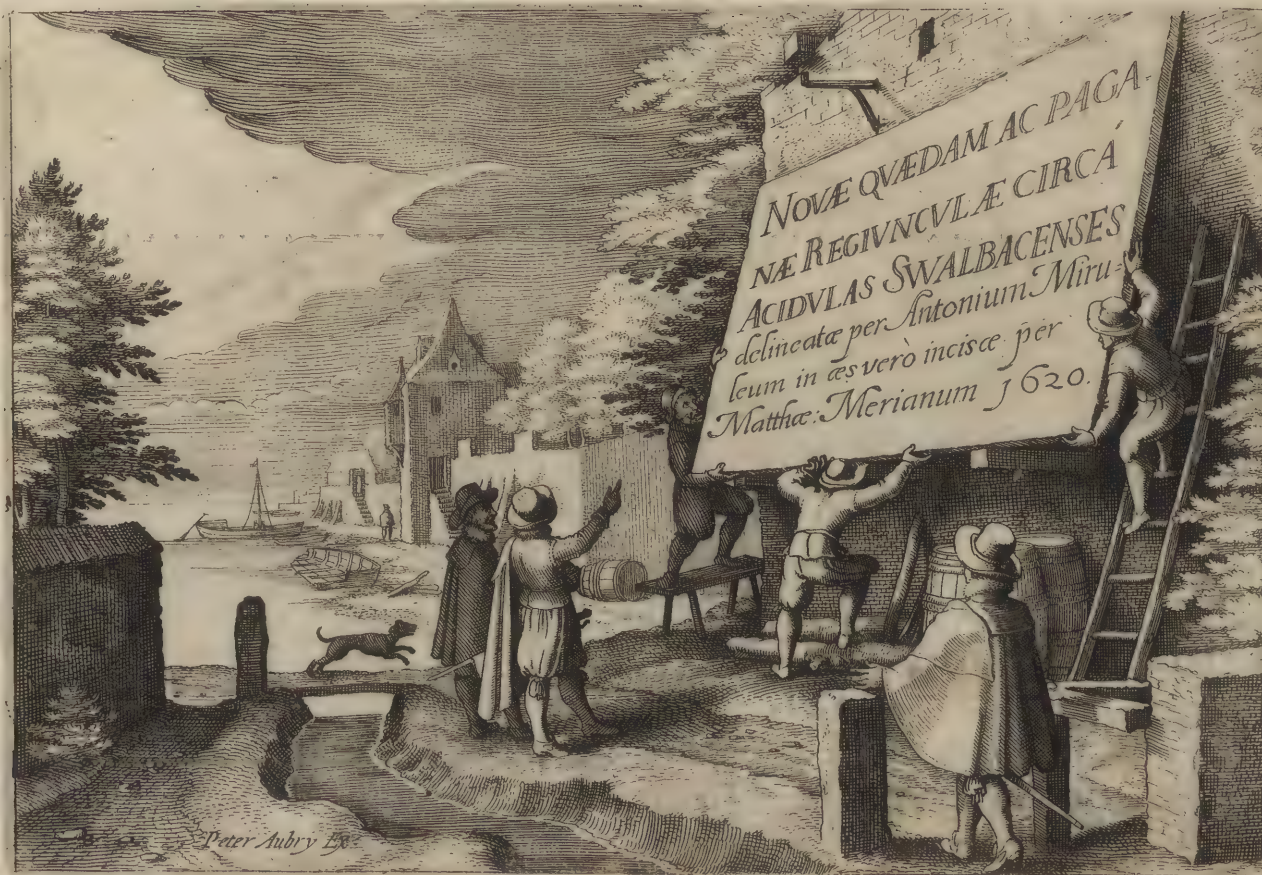 NOVÆ QVÆDAM AC PAGA
NÆ REGIVNCVLÆ CIRCÁ
ACIDVLAS SWALBACENSES
delineatæ per Antonium Miru⹀
leum in æs verò incisæ p̄er
Matthæ: Merianum 1620.
Peter Aubry Ex